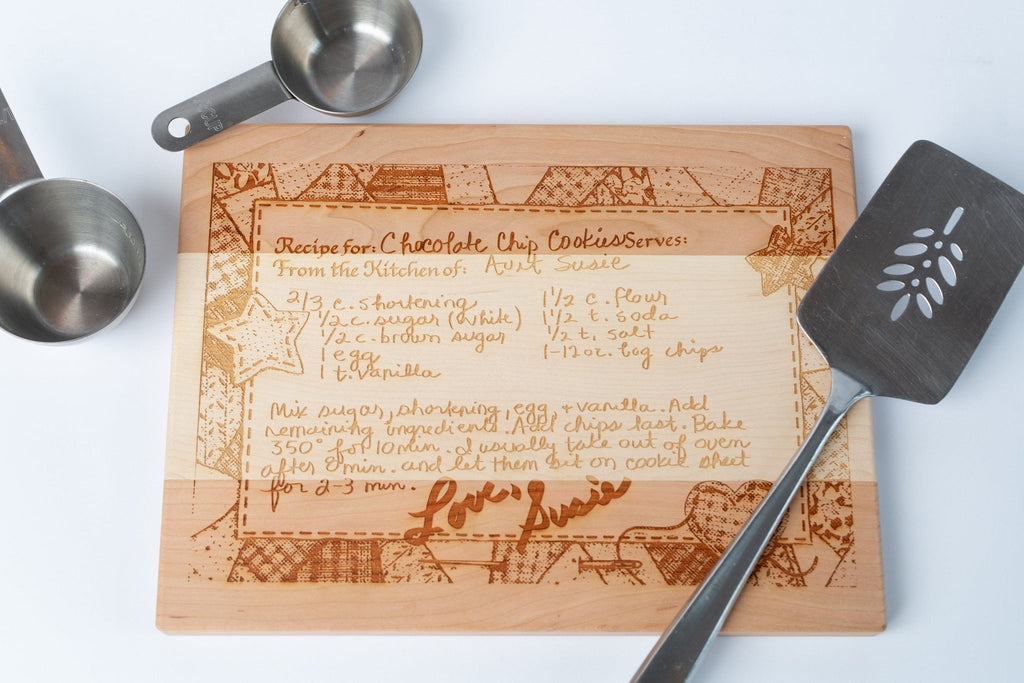 CUP
Recipe for: Chocolate Chip Cookies Serves:
From the Kitchen of: Aunt Susie
2/3 c. shortening
1/2 c. sugar (white)
1/2 c. brown sugar
1 egg
1 t. vanilla
1 1/2 c. flour
1 1/2 t. soda
1/2 t. salt
1-12 oz. bag chips
Mix sugar, shortening, egg, + vanilla. Add
remaining ingredients. Add chips last. Bake
350° for 10 min. I usually take out of oven
after 8 min. and let them sit on cookie sheet
for 2-3 min.
Love, Susie